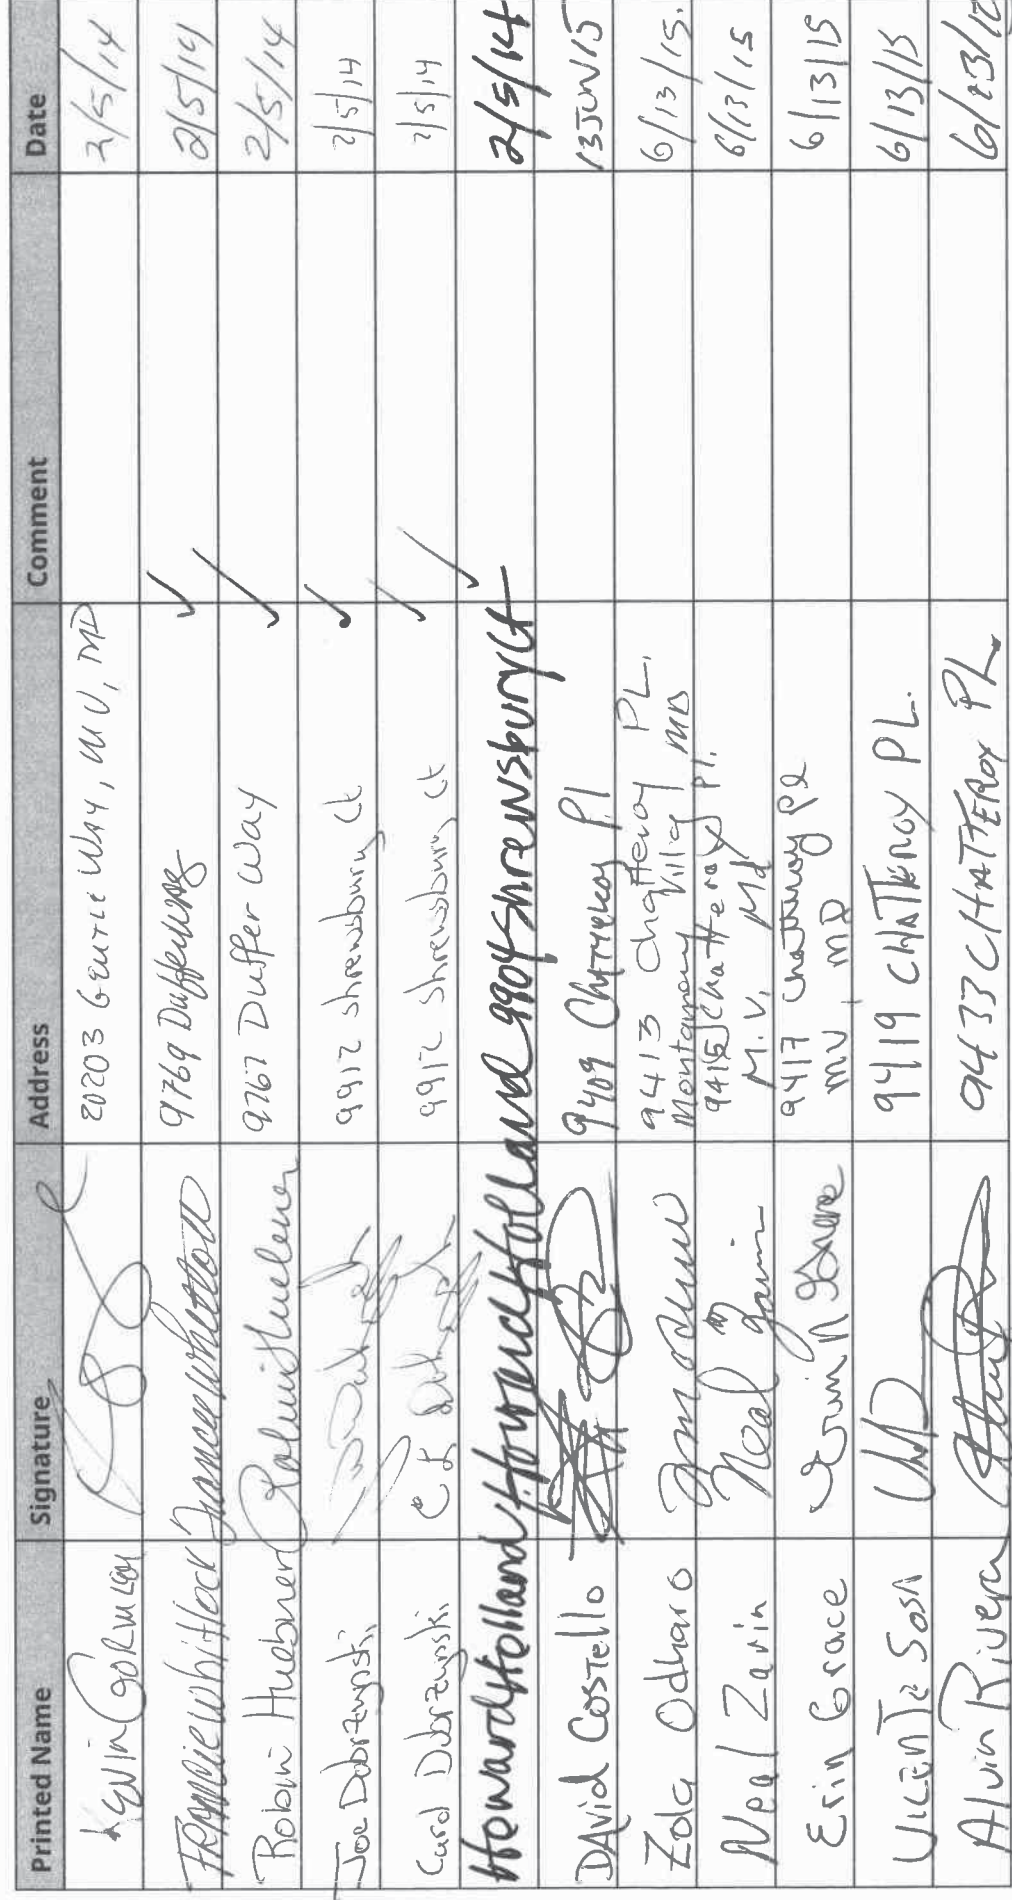 Printed Name Signature Address Comment Date
Kevin Gormley 20203 Gentle Way, MV, MD 2/5/14
Frannie Whitlock 9769 Duffer Way ✓ 2/5/14
Robin Huebner Robin Huebner 9767 Duffer Way ✓ 2/5/14
Joe Dobrzynski 9912 Shrewsbury Ct ✓ 2/5/14
Carol Dobrzynski 9912 Shrewsbury Ct ✓ 2/5/14
Howard Holland Howard Holland 9904 Shrewsbury Ct ✓ 2/5/14
David Costello 9409 Chatteroy Pl 13 JUN 15
Zola Odharo 9413 Chatteroy PL. 6/13/15.
Montgomery Villag, MD
Neal Zarin Neal Zarin 9415 Chatteroy Pl. 6/13/15
M.V, Md
Erin Grace Erin Grace 9417 Chatteroy Pl 6/13/15
MV, MD
Vicente Sosa 9419 CHATTEROY PL. 6/13/15
Alvin Rivera 9433 CHATTEROY PL